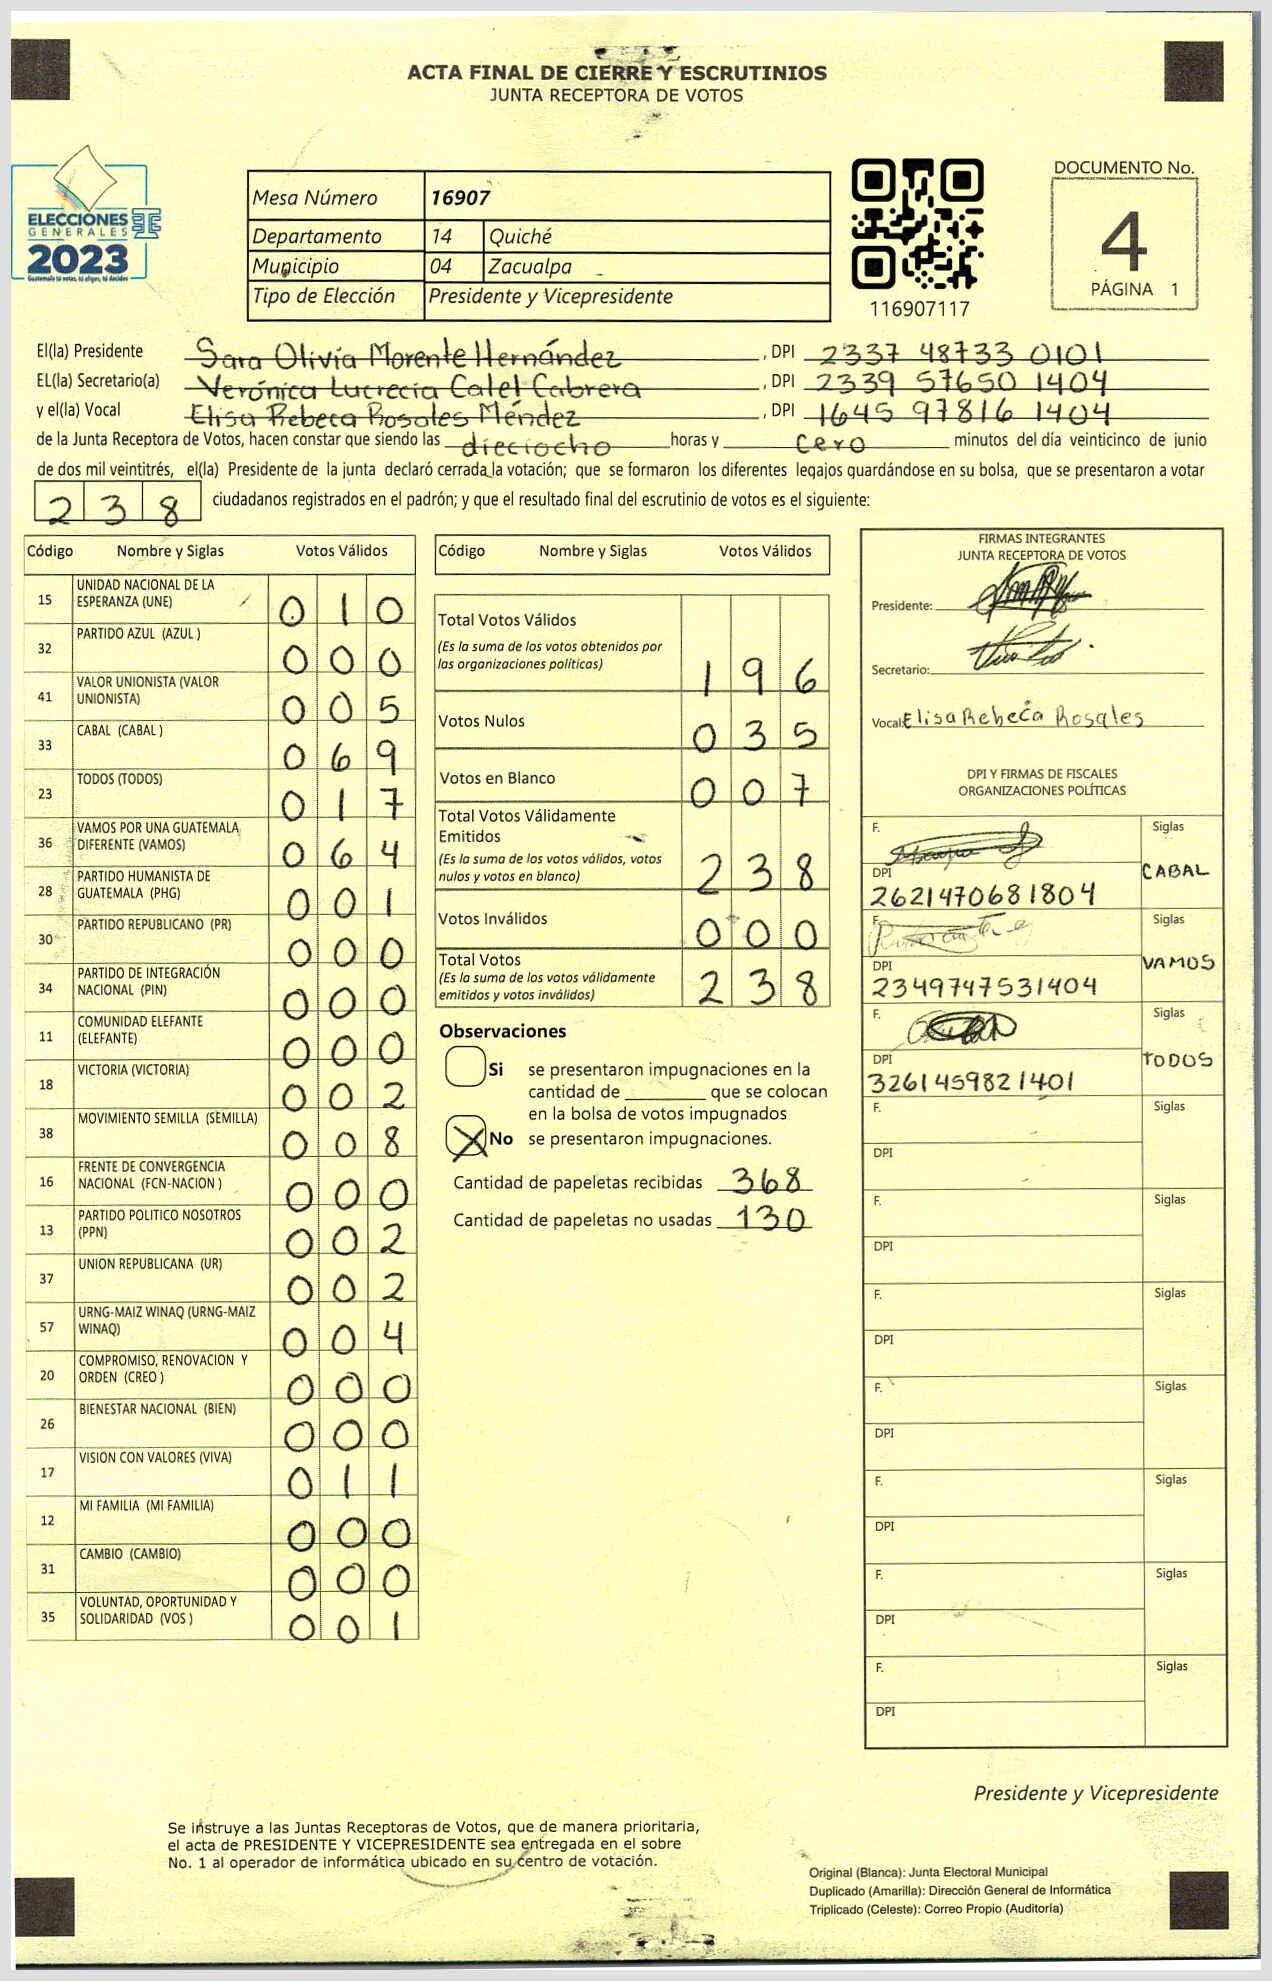 ACTA FINAL DE CIERRE Y ESCRUTINIOS
JUNTA RECEPTORA DE VOTOS
ELECCIONES
GENERALES
2023
Guatemala tú votas, tú eliges, tú decides
Mesa Número 16907
Departamento 14 Quiché
Municipio 04 Zacualpa
Tipo de Elección Presidente y Vicepresidente
116907117
DOCUMENTO No.
4
PÁGINA 1
El(la) Presidente Sara Olivia Morente Hernández, DPI 2337 48733 0101
EL(la) Secretario(a) Verónica Lucrecia Calel Cabrera, DPI 2339 57650 1404
y el(la) Vocal Elisa Rebeca Rosales Méndez, DPI 1645 97816 1404
de la Junta Receptora de Votos, hacen constar que siendo las dieciocho horas y cero minutos del día veinticinco de junio
de dos mil veintitrés, el(la) Presidente de la junta declaró cerrada la votación; que se formaron los diferentes legajos guardándose en su bolsa, que se presentaron a votar
238 ciudadanos registrados en el padrón; y que el resultado final del escrutinio de votos es el siguiente:
Código Nombre y Siglas Votos Válidos
15 UNIDAD NACIONAL DE LA ESPERANZA (UNE) 010
32 PARTIDO AZUL (AZUL ) 000
41 VALOR UNIONISTA (VALOR UNIONISTA) 005
33 CABAL (CABAL ) 069
23 TODOS (TODOS) 017
36 VAMOS POR UNA GUATEMALA DIFERENTE (VAMOS) 064
28 PARTIDO HUMANISTA DE GUATEMALA (PHG) 001
30 PARTIDO REPUBLICANO (PR) 000
34 PARTIDO DE INTEGRACIÓN NACIONAL (PIN) 000
11 COMUNIDAD ELEFANTE (ELEFANTE) 000
18 VICTORIA (VICTORIA) 002
38 MOVIMIENTO SEMILLA (SEMILLA) 008
16 FRENTE DE CONVERGENCIA NACIONAL (FCN-NACION ) 000
13 PARTIDO POLITICO NOSOTROS (PPN) 002
37 UNION REPUBLICANA (UR) 002
57 URNG-MAIZ WINAQ (URNG-MAIZ WINAQ) 004
20 COMPROMISO, RENOVACION Y ORDEN (CREO ) 000
26 BIENESTAR NACIONAL (BIEN) 000
17 VISION CON VALORES (VIVA) 011
12 MI FAMILIA (MI FAMILIA) 000
31 CAMBIO (CAMBIO) 000
35 VOLUNTAD, OPORTUNIDAD Y SOLIDARIDAD (VOS ) 001
Código Nombre y Siglas Votos Válidos
Total Votos Válidos 196
(Es la suma de los votos obtenidos por
las organizaciones políticas)
Votos Nulos 035
Votos en Blanco 007
Total Votos Válidamente
Emitidos 238
(Es la suma de los votos válidos, votos
nulos y votos en blanco)
Votos Inválidos 000
Total Votos 238
(Es la suma de los votos válidamente
emitidos y votos inválidos)
Observaciones
Si se presentaron impugnaciones en la
cantidad de ________ que se colocan
en la bolsa de votos impugnados
No se presentaron impugnaciones.
Cantidad de papeletas recibidas 368
Cantidad de papeletas no usadas 130
FIRMAS INTEGRANTES
JUNTA RECEPTORA DE VOTOS
Presidente:
Secretario:
Vocal: Elisa Rebeca Rosales
DPI Y FIRMAS DE FISCALES
ORGANIZACIONES POLÍTICAS
F. Siglas
DPI CABAL
2621470681804
F. Siglas
DPI VAMOS
2349747531404
F. Siglas
DPI TODOS
3261459821401
F. Siglas
DPI
F. Siglas
DPI
F. Siglas
DPI
F. Siglas
DPI
F. Siglas
DPI
F. Siglas
DPI
F. Siglas
DPI
Presidente y Vicepresidente
Se instruye a las Juntas Receptoras de Votos, que de manera prioritaria,
el acta de PRESIDENTE Y VICEPRESIDENTE sea entregada en el sobre
No. 1 al operador de informática ubicado en su centro de votación.
Original (Blanca): Junta Electoral Municipal
Duplicado (Amarilla): Dirección General de Informática
Triplicado (Celeste): Correo Propio (Auditoría)